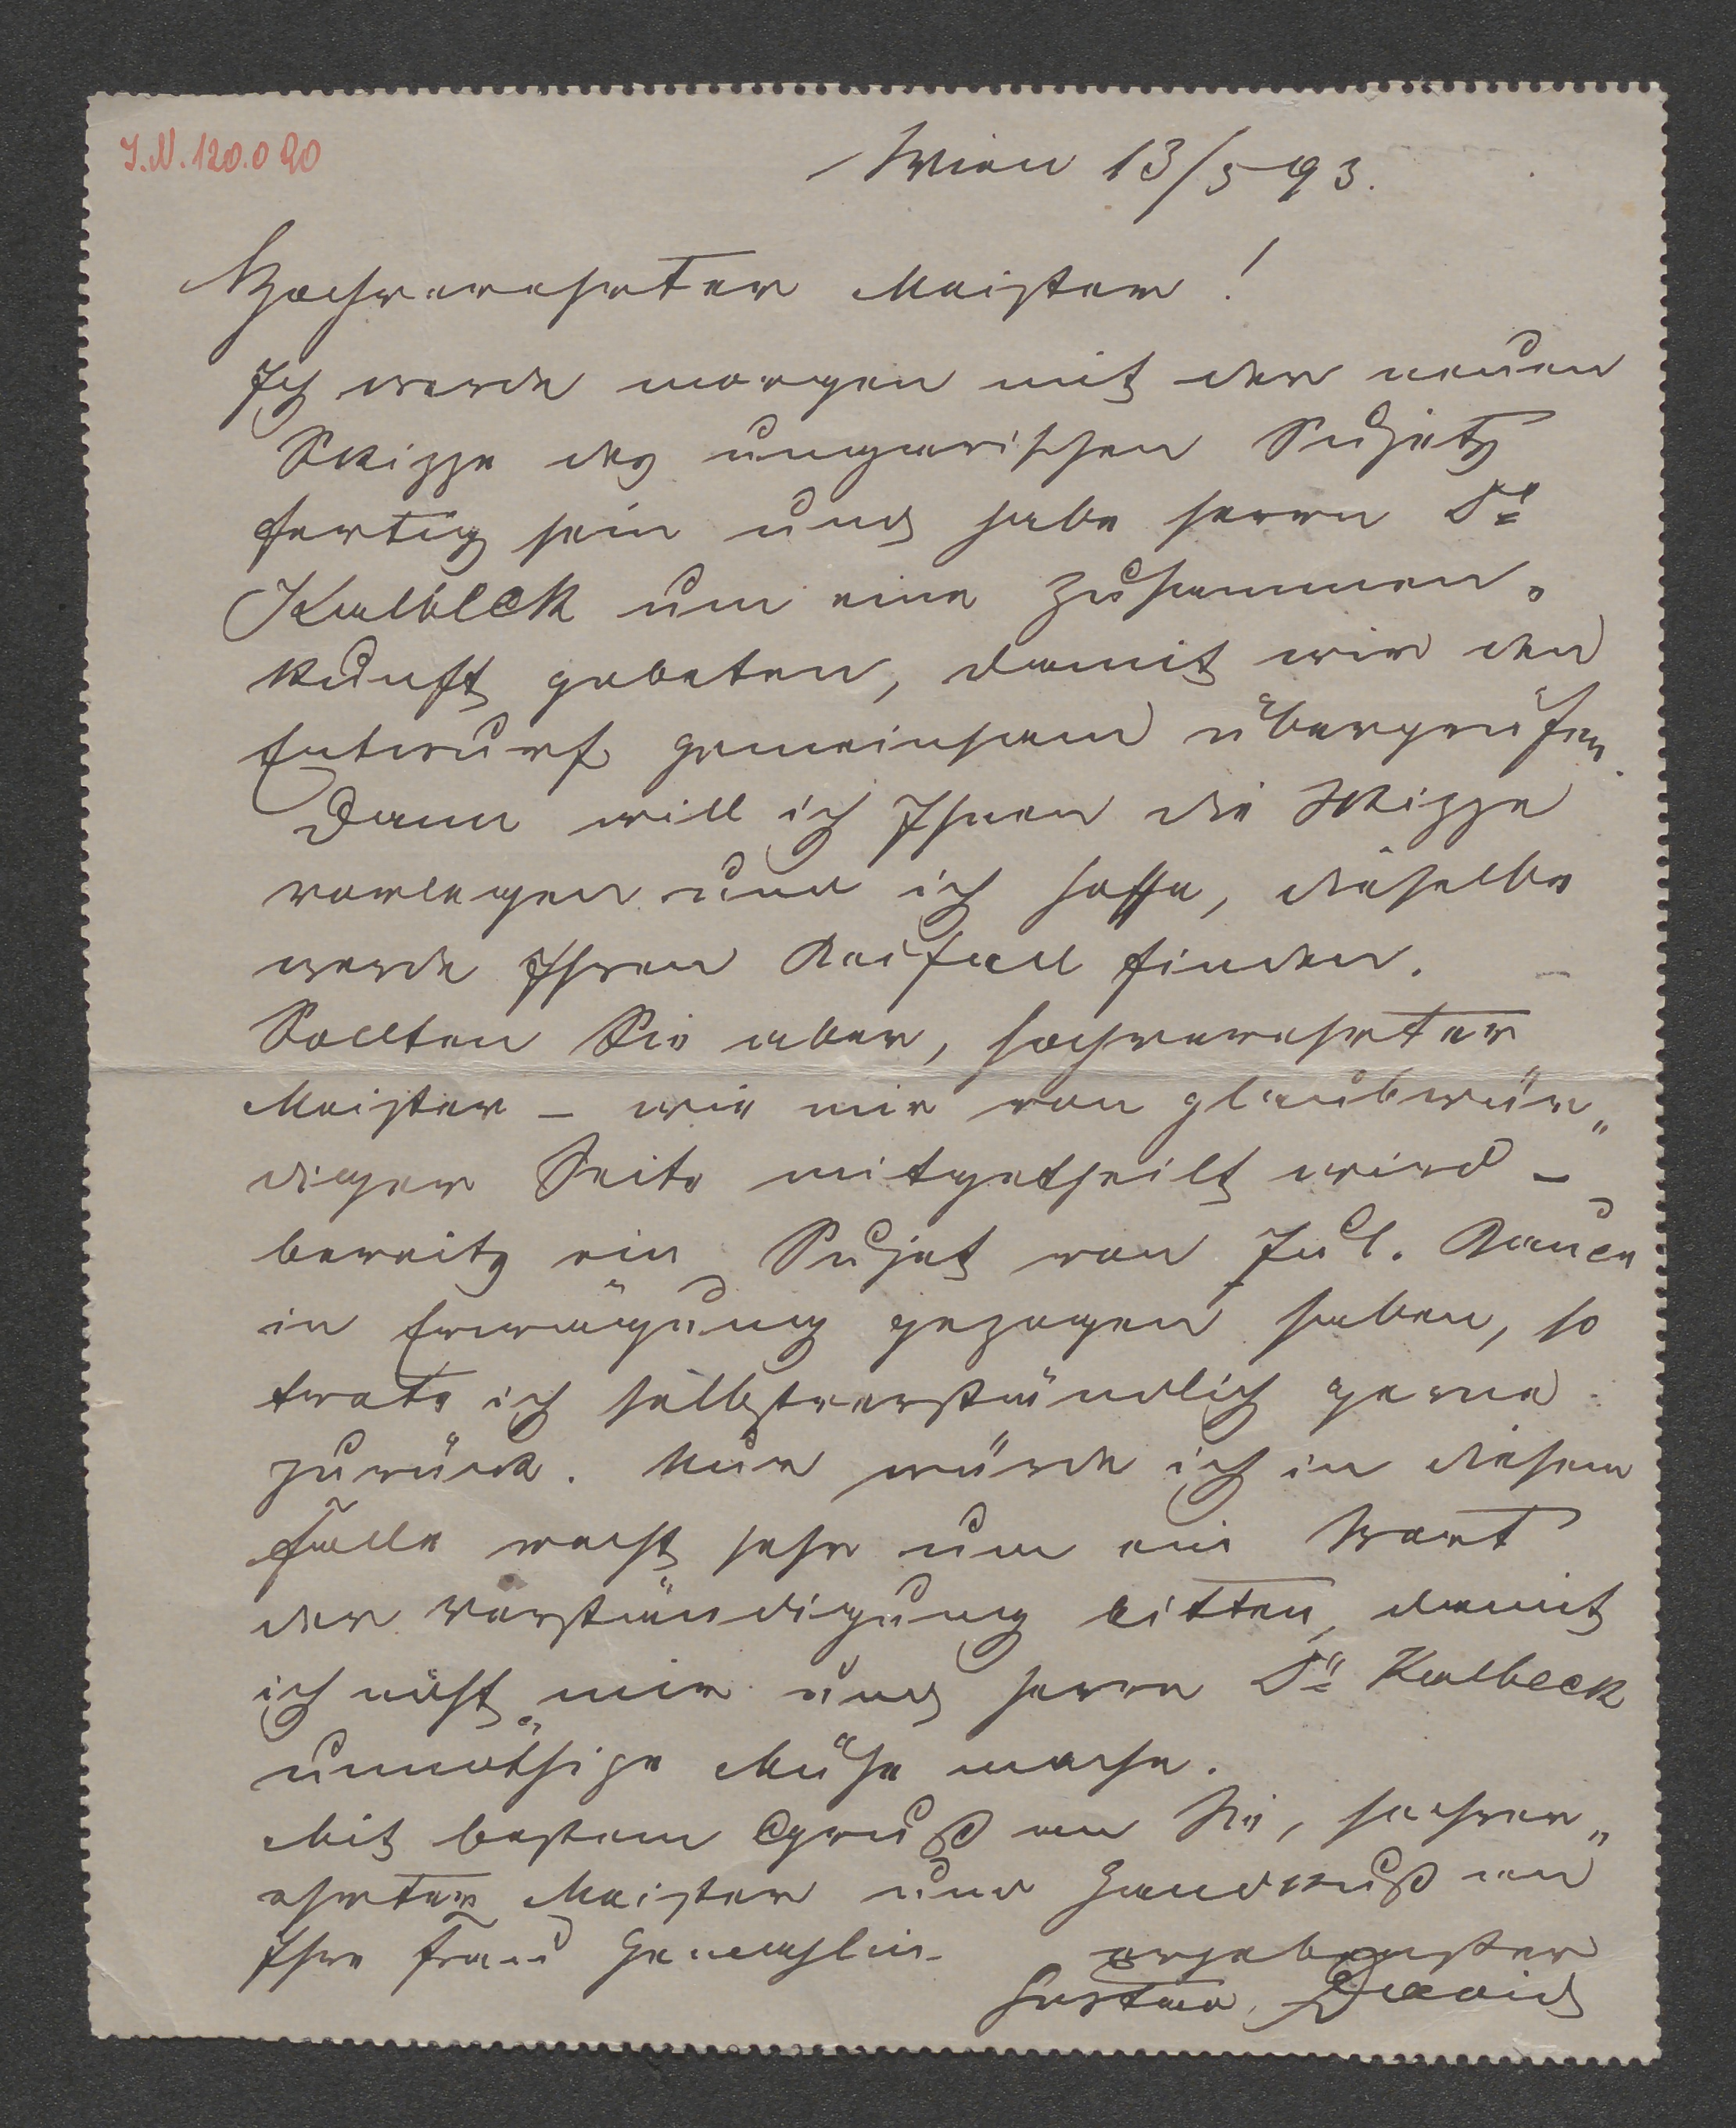 I.N. 120.090
Wien 13/5 93.
Hochverehrter Meister!
Ich werde morgen mit der neuen
Skizze des ungarischen Sujets
fertig sein und habe Herrn Dr
Kalbeck um eine Zusammen-
kunft gebeten, damit wir den
Entwurf gemeinsam überprüfen.
Dann will ich Ihnen die Skizze
vorlegen und ich hoffe, dieselbe
werde Ihren Beifall finden.
Sollten Sie aber, hochverehrter
Meister – wie mir von glaubwür„
diger Seite mitgetheilt wird –
bereits ein Sujet von Jul. Bauer
in Erwägung gezogen haben, so
trete ich selbstverständlich gerne
zurück. Nur würde ich in diesem
Falle recht sehr um ein Wort
der Verständigung bitten, damit
ich nicht mir und Herrn Dr Kalbeck
unnöthige Mühe mache.
Mit bestem Gruß an Sie, hochver„
ehrter Meister und Handkuß an
Ihre Frau Gemahlin
ergebenster
Gustav Davis